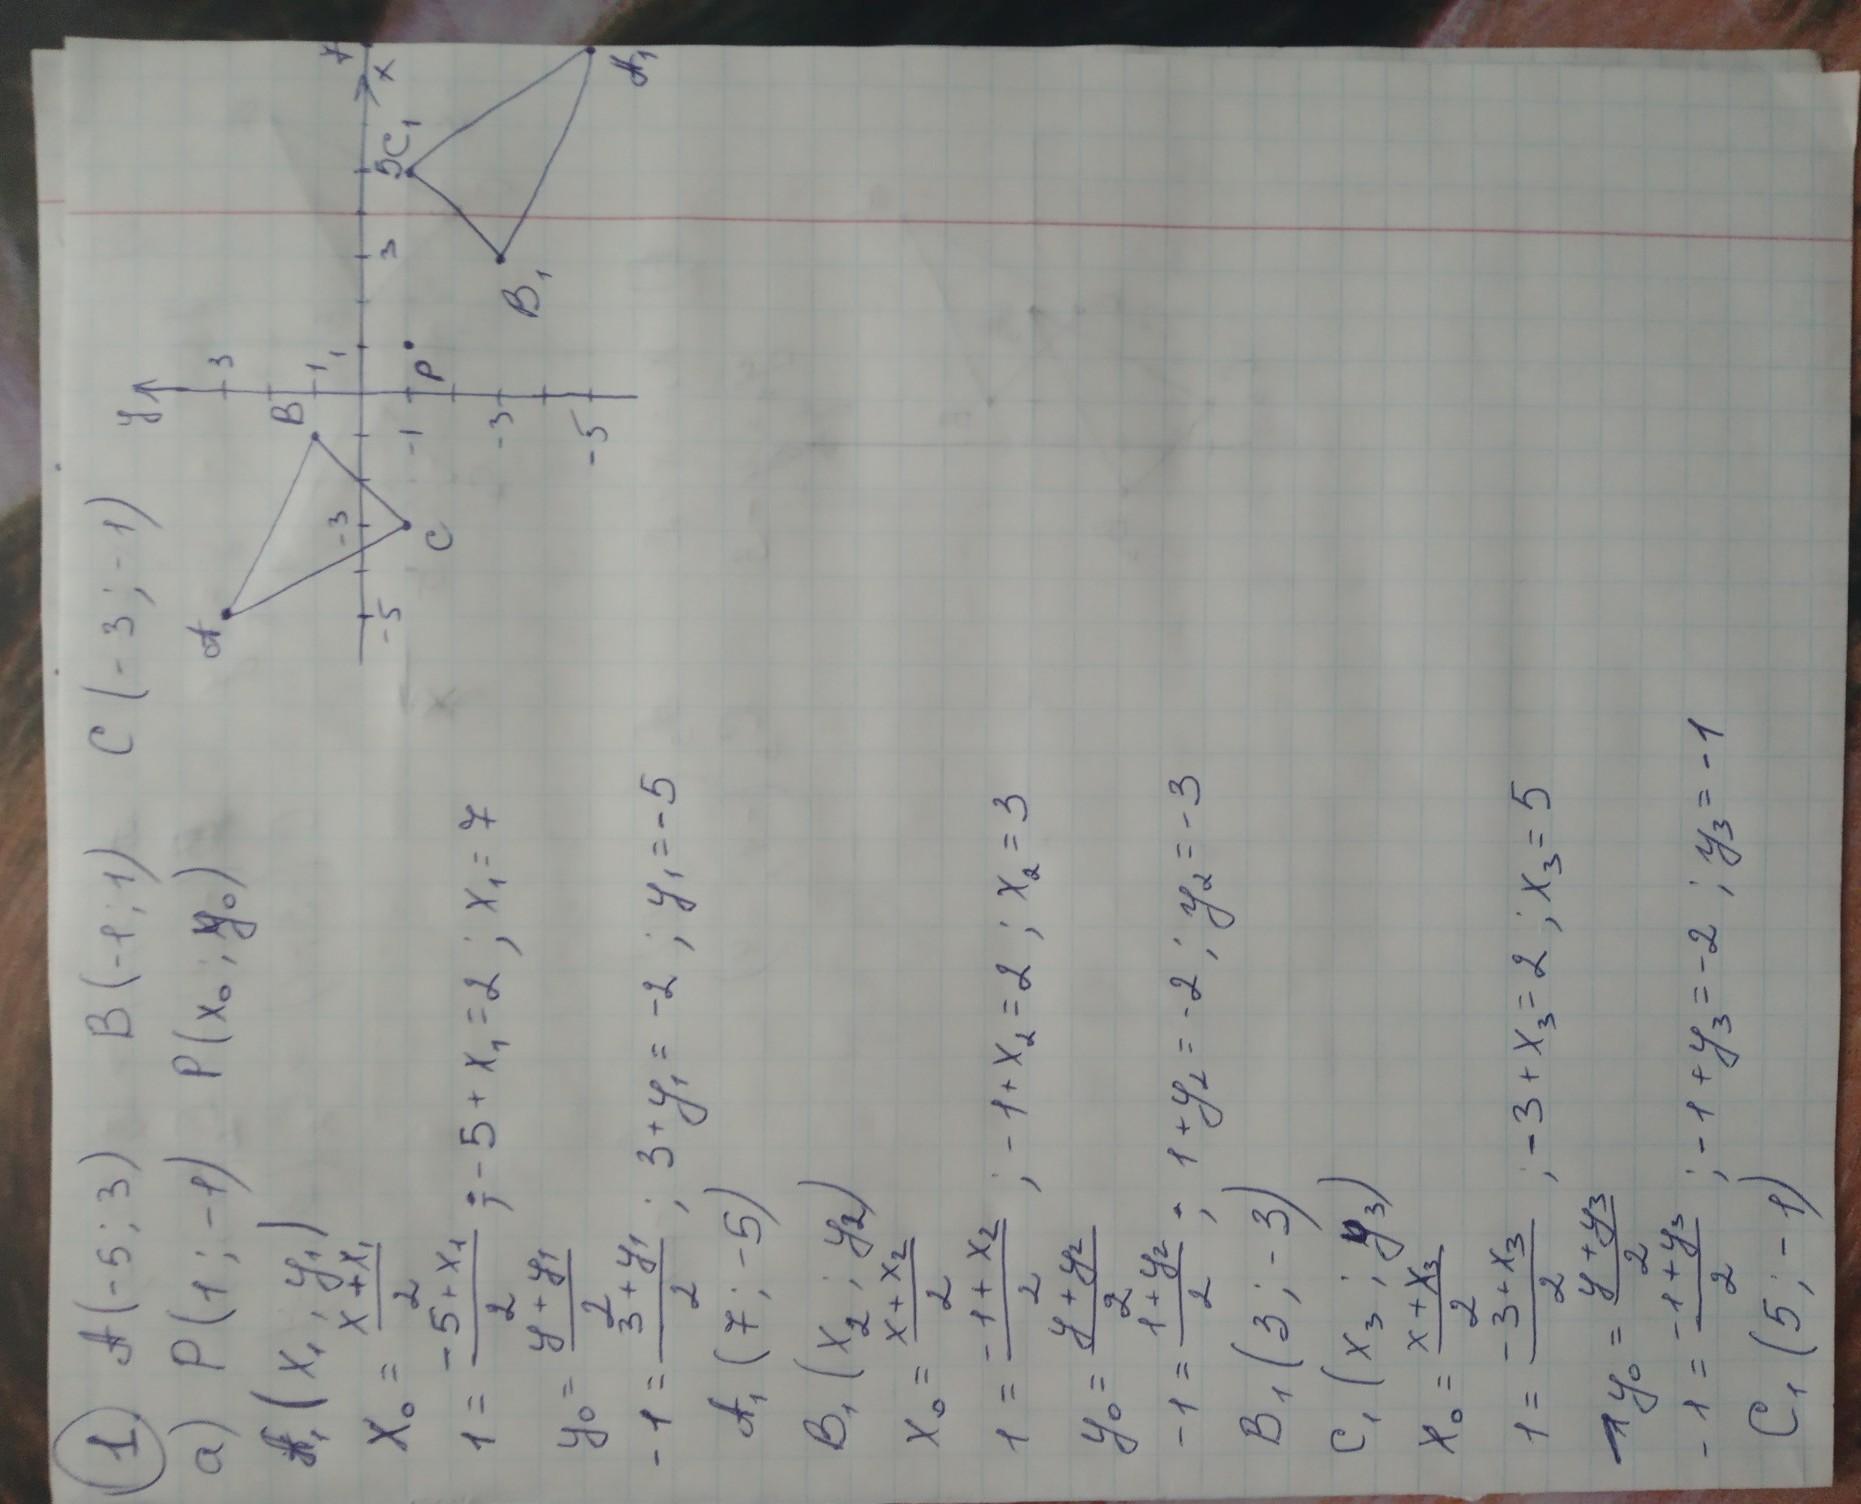 1 A(-5;3) B(-1;1) C(-3;-1)
а) P(1;-1) P(x₀;y₀)
A₁(x₁;y₁)
x₀ = (x+x₁)/2
1 = (-5+x₁)/2 ; -5+x₁=2 ; x₁=7
y₀ = (y+y₁)/2
-1 = (3+y₁)/2 ; 3+y₁=-2 ; y₁=-5
A₁(7;-5)
B₁(x₂;y₂)
x₀ = (x+x₂)/2
1 = (-1+x₂)/2 ; -1+x₂=2 ; x₂=3
y₀ = (y+y₂)/2
-1 = (1+y₂)/2 ; 1+y₂=-2 ; y₂=-3
B₁(3;-3)
C₁(x₃;y₃)
x₀ = (x+x₃)/2
1 = (-3+x₃)/2 ; -3+x₃=2 ; x₃=5
y₀ = (y+y₃)/2
-1 = (-1+y₃)/2 ; -1+y₃=-2 ; y₃=-1
C₁(5;-1)
y
A
3
B
1
1
-5
-3
3
5
7
x
C
-1
P
C₁
-3
B₁
-5
A₁